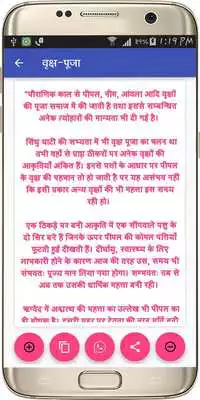 1:19 PM
वृक्ष-पूजा
"पौराणिक काल से पीपल, नीम, आंवला आदि वृक्षों
की पूजा समाज में की जाती है तथा इससे सम्बन्धित
अनेक त्योहारों की मान्यता भी दी गई है।
सिंधु घाटी की सभ्यता में भी वृक्ष पूजा का चलन था
तभी वहाँ से प्राप्त ठीकरों पर अनेक वृक्षों की
आकृतियाँ अंकित हैं। इनमे पत्तों के आधार पर पीपल
के वृक्ष की पहचान तो हो जाती है पर यह असंभव नहीं
कि इसी प्रकार अन्य वृक्षों की भी महत्ता इस समय
रही हो।
एक ठिकड़े पर बनी आकृति में एक सींगवाले पशु के
दो सिर बने हैं जिनके ऊपर पीपल की कोमल पत्तियाँ
फूटती हुई दीखती हैं। दीर्घायु, स्वास्थ्य के लिए
लाभकारी होने के कारण आज की तरह उस, समय भी
संभवतः पूज्य माना लिया गया होगा। सम्भवतः तब से
अब तक उसकी धार्मिक महत्ता बनी रही।
ऋग्वेद में अश्वत्थ की महत्ता का उल्लेख भी पीपल का